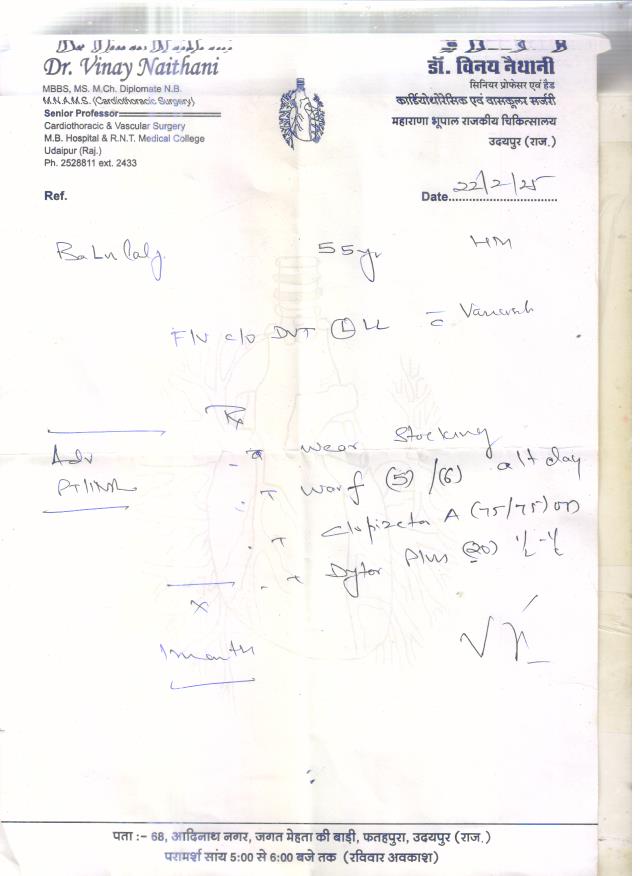 Dr. Vinay Naithani
MBBS, MS. M.Ch. Diplomate N.B.
M.N.A.M.S. (Cardiothoracic Surgery)
Senior Professor
Cardiothoracic & Vascular Surgery
M.B. Hospital & R.N.T. Medical College
Udaipur (Raj.)
Ph. 2528811 ext. 2433
डॉ. विनय नैथानी
सिनियर प्रोफेसर एवं हैड
कार्डियोथोरेसिक एवं वासकूलर सर्जरी
महाराणा भूपाल राजकीय चिकित्सालय
उदयपुर (राज.)
Ref.
Date 22/2/25
55yr
F/U c/o DVT Ⓛ LL
Rx
wear Stocking
Adv
PT/INR
T Warf (5)/(6) alt day
T Clopizeta A (75/75) OD
T Dytor Plus (20)
x
1 month
पता :– 68, आदिनाथ नगर, जगत मेहता की बाड़ी, फतहपुरा, उदयपुर (राज.)
परामर्श सांय 5:00 से 6:00 बजे तक (रविवार अवकाश)